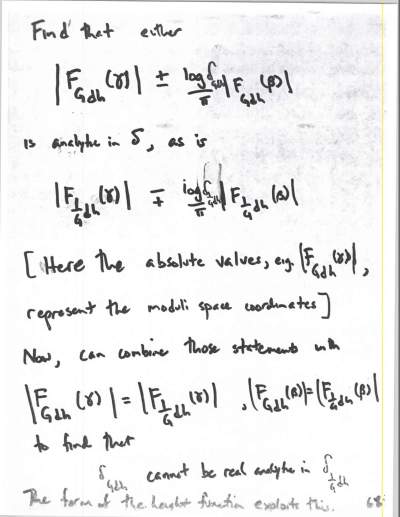 Find that either
|F_{Gdh}(γ)| ± \frac{log δ_{Gdh}}{π} |F_{Gdh}(β)|
is analytic in δ, as is
|F_{\frac{1}{G}dh}(γ)| ∓ \frac{log δ_{\frac{1}{G}dh}}{π} |F_{\frac{1}{G}dh}(β)|
[Here the absolute values, e.g. |F_{Gdh}(γ)|,
represent the moduli space coordinates]
Now, can combine those statements with
|F_{Gdh}(γ)| = |F_{\frac{1}{G}dh}(γ)| , |F_{Gdh}(β)| = |F_{\frac{1}{G}dh}(β)|
to find that
δ_{Gdh} cannot be real analytic in δ_{\frac{1}{G}dh}
The form of the height function exploits this. 68